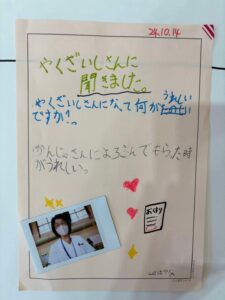 24.10.14
やくざいしさんに
聞きました。
やくざいしさんになって何が
うれしい
ですか?
かんじゃさんによろこんでもらった時
がうれしい。
おくすり